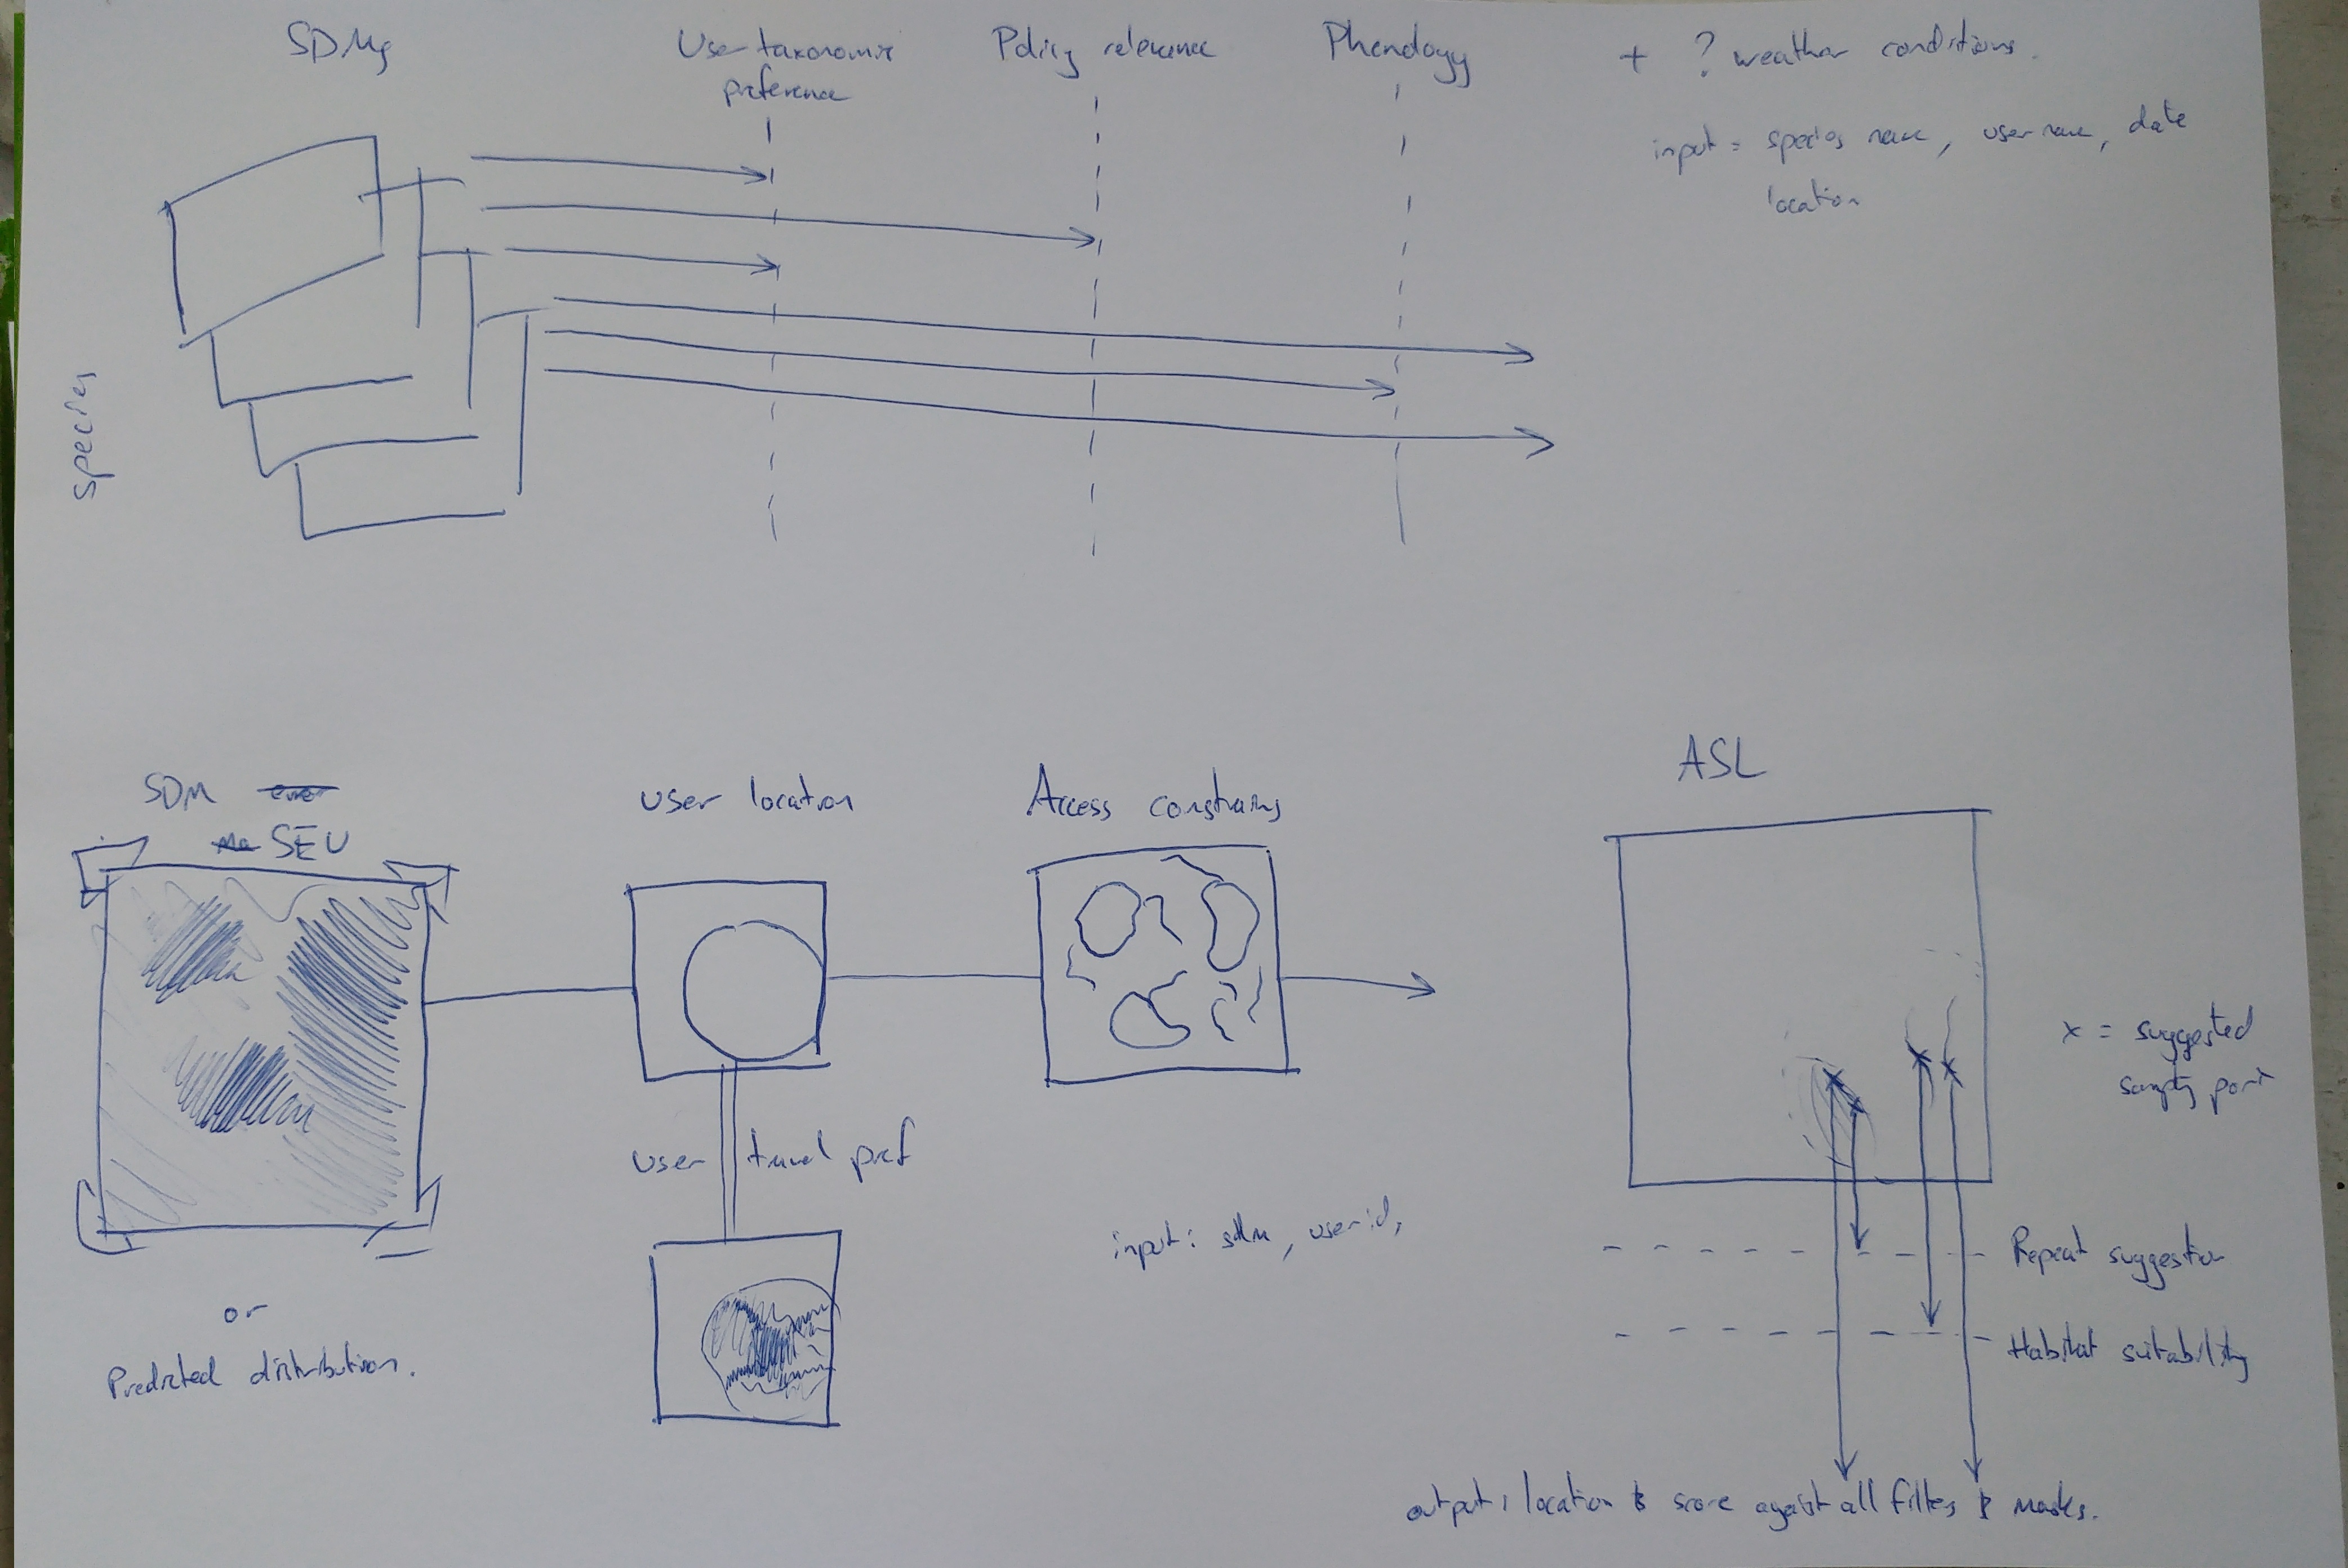 SDMs
User taxonomic
preference
Policy relevance
Phenology
+ ? weather conditions.
input = species name, user name, date
location
Species
SDM error
SEU
or
Predicted distribution.
User location
User travel pref
Access constrains
input: sdm, user id,
ASL
x = suggested
sampling point
Repeat suggestion
Habitat suitability
output: location & score against all filters & masks.